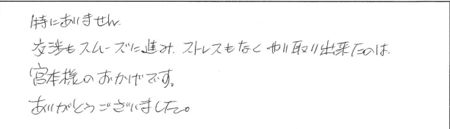 特にありません
交渉もスムーズに進み、ストレスもなくやり取り出来たのは
宮本様のおかげです。
ありがとうございました。